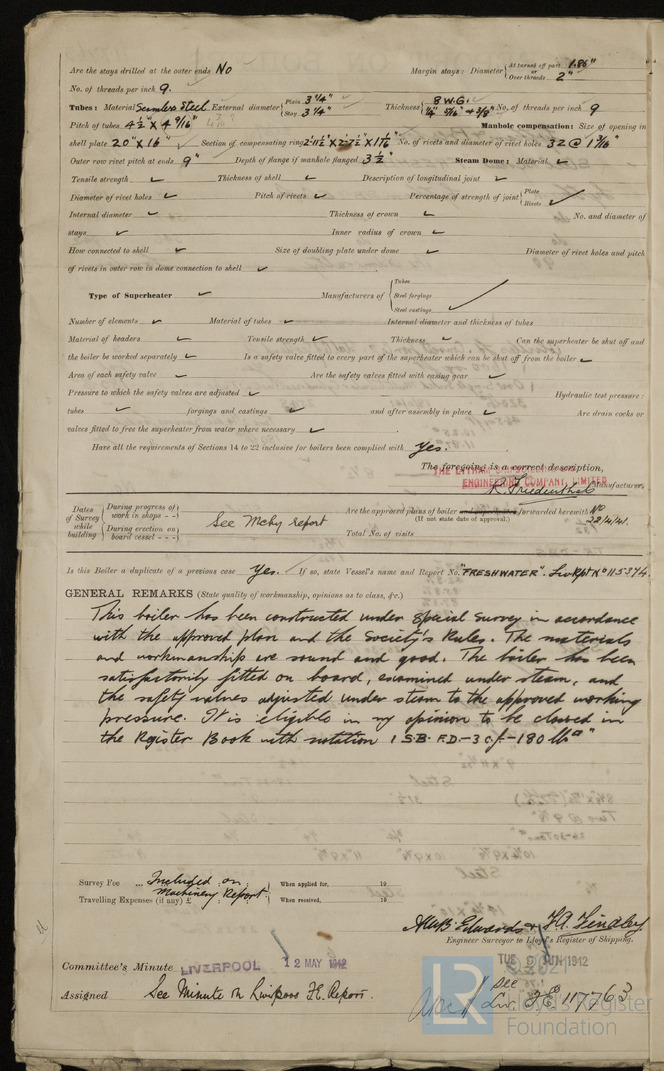 Are the stays drilled at the outer ends No Margin stays: Diameter { At turned off part 1.86" or Over threads 2"
No. of threads per inch 9.
Tubes: Material Seamless Steel External diameter { Plain 3 1/4" Stay 3 1/4" Thickness { 8 W.G. 1/4" 5/16" & 3/8" No. of threads per inch 9
Pitch of tubes 4 1/2" X 4 9/16" Manhole compensation: Size of opening in
shell plate 20" X 16" Section of compensating ring 2'-11 1/2" X 2'-7 1/2" X 1 1/16" No. of rivets and diameter of rivet holes 32 @ 1 3/16"
Outer row rivet pitch at ends 9" Depth of flange if manhole flanged 3 1/2" Steam Dome: Material ✓
Tensile strength ✓ Thickness of shell ✓ Description of longitudinal joint ✓
Diameter of rivet holes ✓ Pitch of rivets ✓ Percentage of strength of joint { Plate Rivets ✓
Internal diameter ✓ Thickness of crown ✓ No. and diameter of
stays ✓ Inner radius of crown ✓
How connected to shell ✓ Size of doubling plate under dome ✓ Diameter of rivet holes and pitch
of rivets in outer row in dome connection to shell ✓
Type of Superheater ✓ Manufacturers of { Tubes Steel forgings Steel castings ✓
Number of elements ✓ Material of tubes ✓ Internal diameter and thickness of tubes
Material of headers ✓ Tensile strength ✓ Thickness ✓ Can the superheater be shut off and
the boiler be worked separately ✓ Is a safety valve fitted to every part of the superheater which can be shut off from the boiler ✓
Area of each safety valve ✓ Are the safety valves fitted with easing gear ✓
Pressure to which the safety valves are adjusted ✓ Hydraulic test pressure:
tubes ✓ forgings and castings ✓ and after assembly in place ✓ Are drain cocks or
valves fitted to free the superheater from water where necessary ✓
Have all the requirements of Sections 14 to 22 inclusive for boilers been complied with Yes.
The foregoing is a correct description,
THE LYTHAM SHIPBUILDING AND
ENGINEERING COMPANY, LIMITED
K. Friedenthal Manufacturers.
Dates of Survey while building { During progress of work in shops - - } { During erection on board vessel - - - } See Mchy report
Are the approved plans of boiler and superheater forwarded herewith NO
(If not state date of approval.) 22/4/41.
Total No. of visits
Is this Boiler a duplicate of a previous case Yes. If so, state Vessel's name and Report No. "FRESHWATER". Liv. Rpt. No 115374.
GENERAL REMARKS (State quality of workmanship, opinions as to class, &c.)
This boiler has been constructed under special survey in accordance
with the approved plan and the Society's Rules. The materials
and workmanship are sound and good. The boiler has been
satisfactorily fitted on board, examined under steam, and
the safety valves adjusted under steam to the approved working
pressure. It is eligible in my opinion to be classed in
the Register Book with notation 1 S.B. F.D. - 3 c.f - 180 lb □"
Survey Fee ... Included on When applied for, 19
Machinery Report.
Travelling Expenses (if any) £ When received, 19
Alex B. Edwards & F.A. Findlay
Engineer Surveyor to Lloyd's Register of Shipping.
Committee's Minute LIVERPOOL 12 MAY 1942 TUE 9 JUN 1942
Assigned See Minute on Liverpool F.E. Report. See
Liv. F.E. 117763
© 2021
LR Lloyd's Register
Foundation